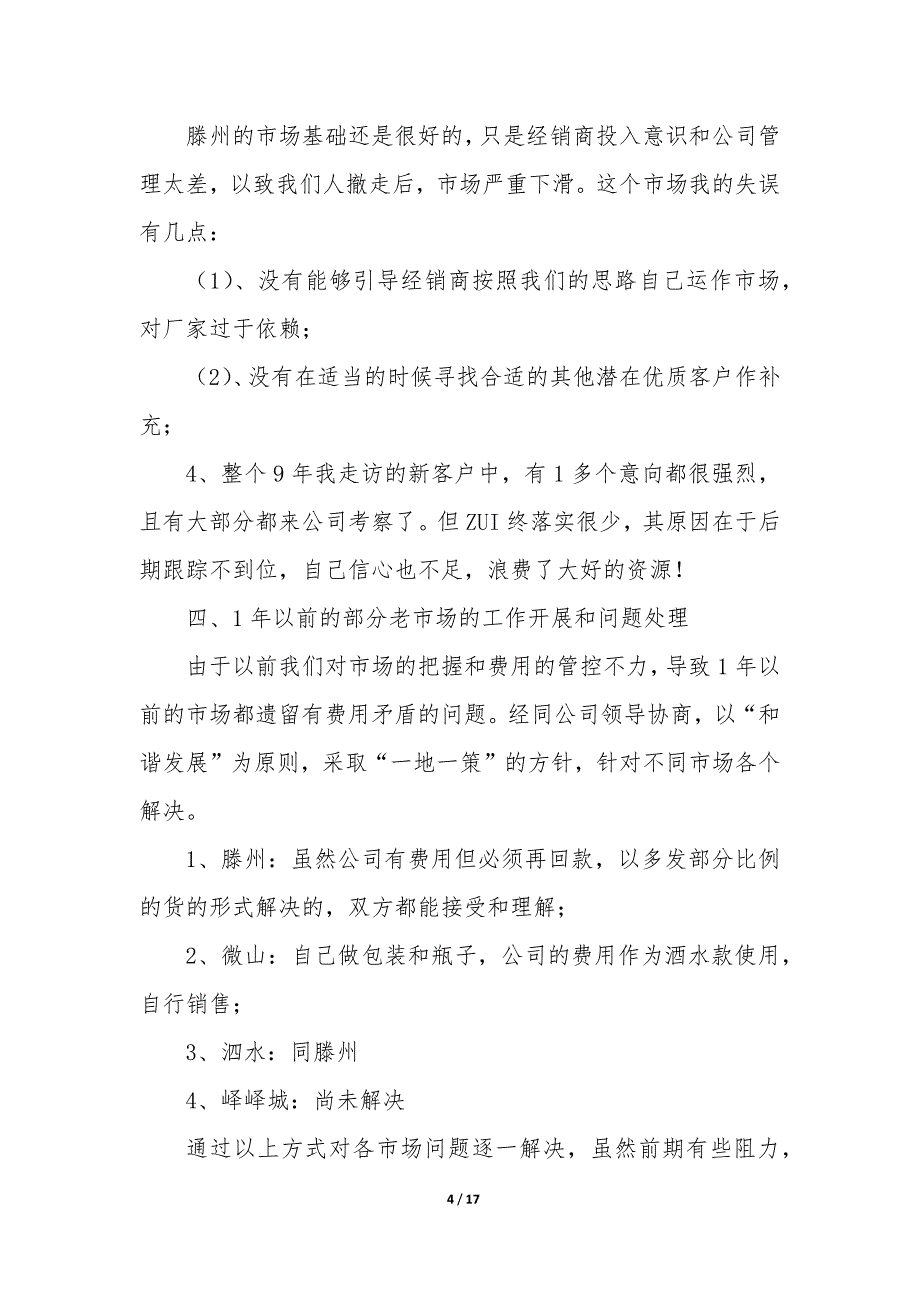 滕州的市场基础还是很好的，只是经销商投入意识和公司管
理太差，以致我们人撤走后，市场严重下滑。这个市场我的失误
有几点：
（1）、没有能够引导经销商按照我们的思路自己运作市场，
对厂家过于依赖；
（2）、没有在适当的时候寻找合适的其他潜在优质客户作补
充；
4、整个 9 年我走访的新客户中，有 1 多个意向都很强烈，
且有大部分都来公司考察了。但 ZUI 终落实很少，其原因在于后
期跟踪不到位，自己信心也不足，浪费了大好的资源！
四、1 年以前的部分老市场的工作开展和问题处理
由于以前我们对市场的把握和费用的管控不力，导致 1 年以
前的市场都遗留有费用矛盾的问题。经同公司领导协商，以“和
谐发展”为原则，采取“一地一策”的方针，针对不同市场各个
解决。
1、滕州：虽然公司有费用但必须再回款，以多发部分比例
的货的形式解决的，双方都能接受和理解；
2、微山：自己做包装和瓶子，公司的费用作为酒水款使用，
自行销售；
3、泗水：同滕州
4、峄峄城：尚未解决
通过以上方式对各市场问题逐一解决，虽然前期有些阻力，
4 / 17